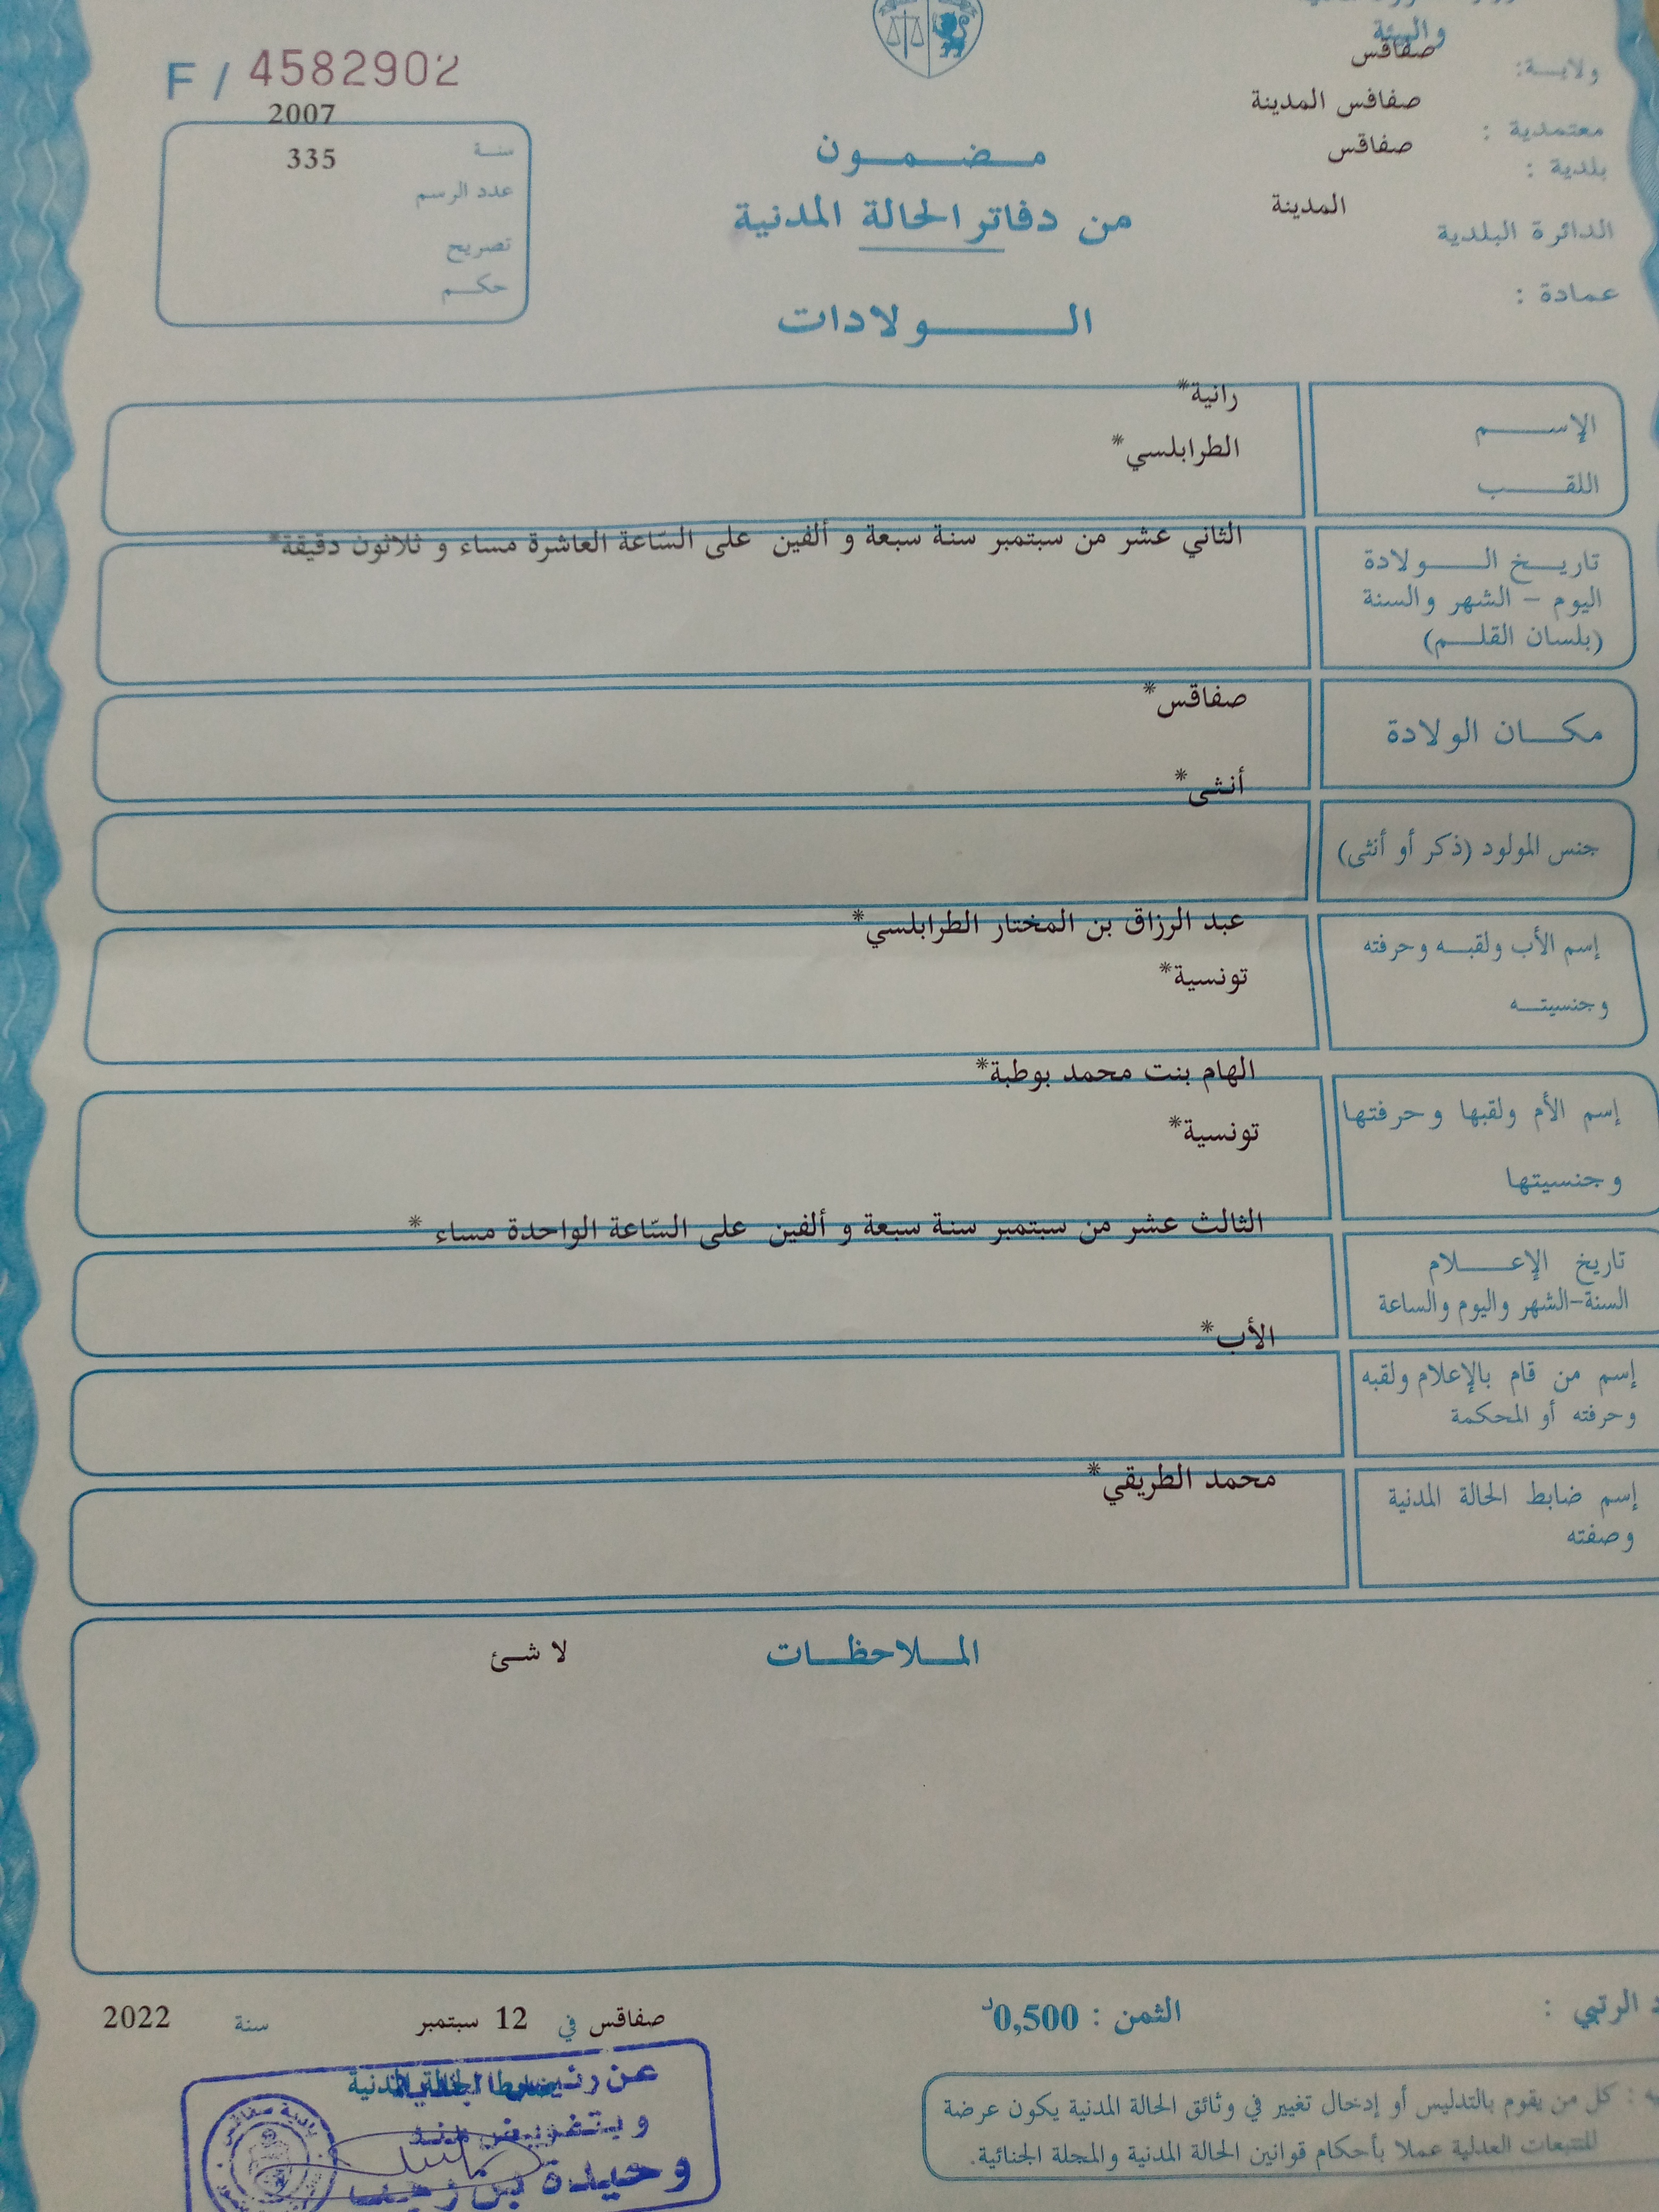 والبيئة
ولايـــة: صفاقس
معتمدية : صفاقس المدينة
بلدية : صفاقس
الدائرة البلدية المدينة
عمادة :
F / 4582902
سنـة 2007
عدد الرسم 335
تصريح
حكـــم
مــضــمــون
من دفاتر الحالة المدنية
الــــولادات
الإســـــم رانية*
اللقـــــب الطرابلسي*
تاريــخ الـــــولادة الثاني عشر من سبتمبر سنة سبعة و ألفين على السّاعة العاشرة مساء و ثلاثون دقيقة*
اليوم – الشهر والسنة
(بلسان القلـــم)
مكـــان الولادة صفاقس*
جنس المولود (ذكر أو أنثى) أنثى*
إسم الأب ولقبــه وحرفته عبد الرزاق بن المختار الطرابلسي*
وجنسيتــه تونسية*
إسم الأم ولقبها وحرفتها الهام بنت محمد بوطبة*
وجنسيتها تونسية*
تاريخ الإعــــلام الثالث عشر من سبتمبر سنة سبعة و ألفين على السّاعة الواحدة مساء *
السنة-الشهر واليوم والساعة
إسم من قام بالإعلام ولقبه الأب*
وحرفته أو المحكمة
إسم ضابط الحالة المدنية محمد الطريقي*
وصفته
المــلاحظــات لا شئ
الرتبي :
الثمن : 0,500د
صفاقس في 12 سبتمبر سنة 2022
كل من يقوم بالتدليس أو إدخال تغيير في وثائق الحالة المدنية يكون عرضة
للتتبعات العدلية عملا بأحكام قوانين الحالة المدنية والمجلة الجنائية.
عن رئيس
وبتفويض منه
وحيدة بن رجب